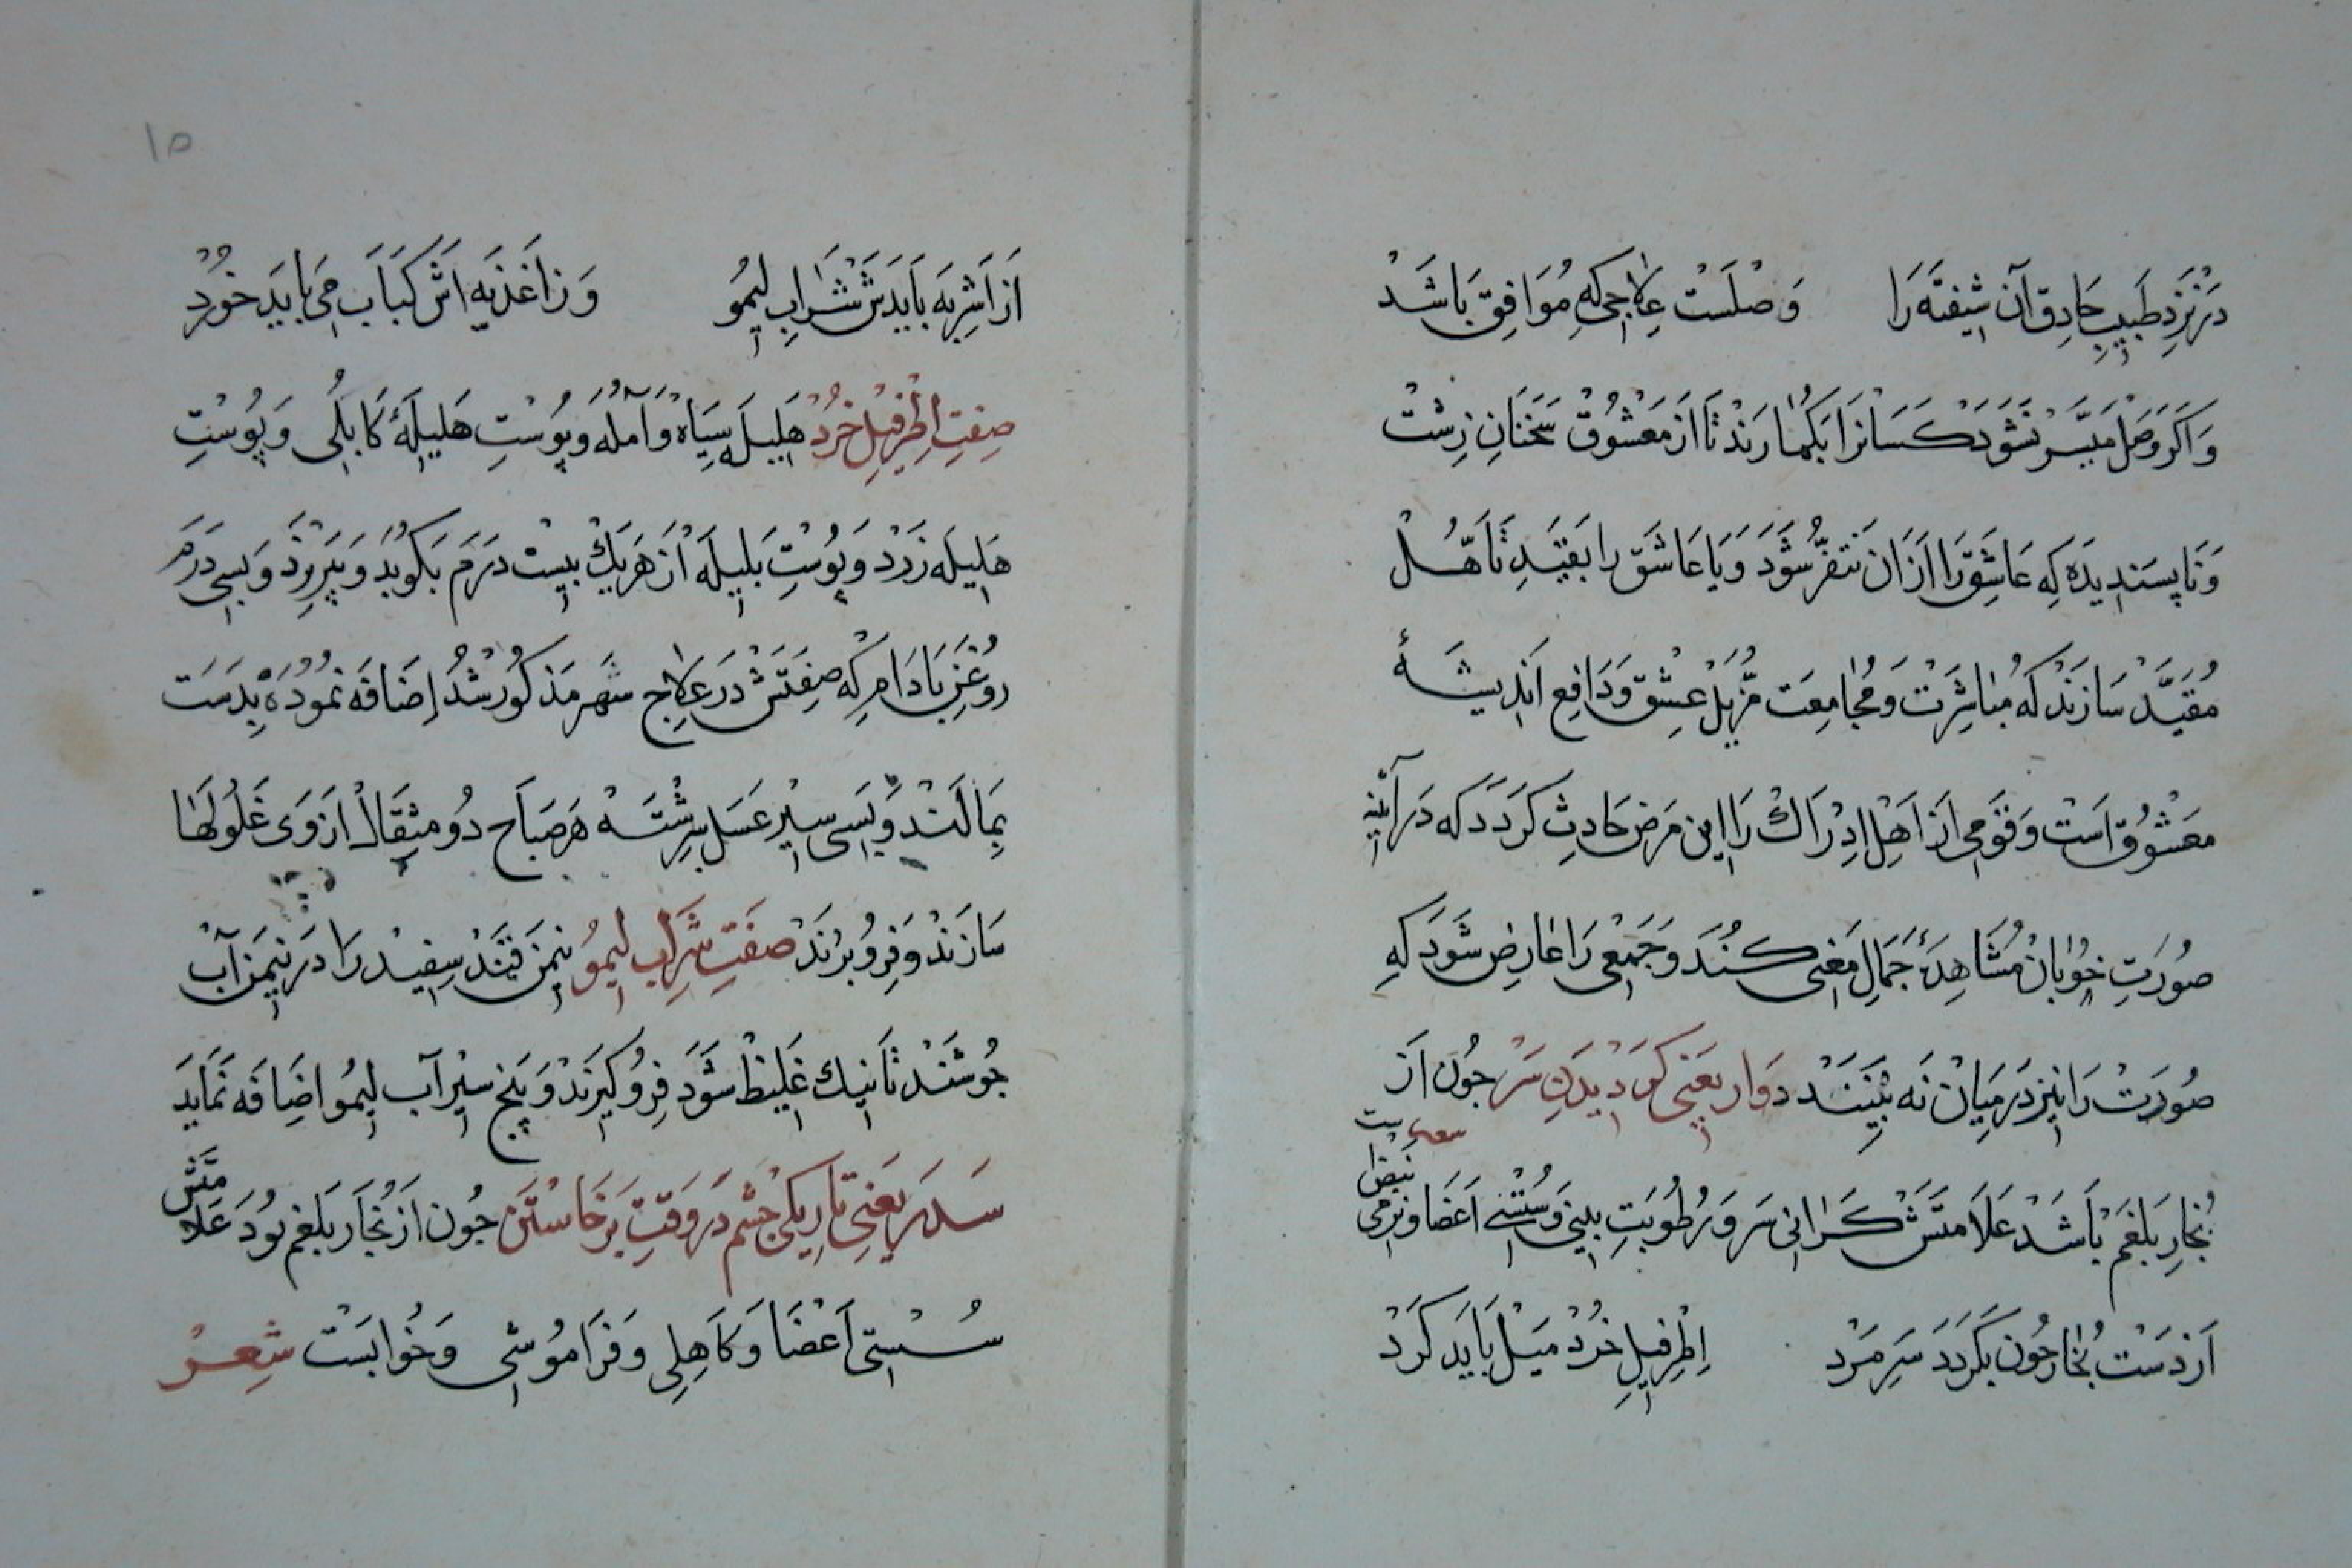 دَرْ نَزْدِ طَبِيبِ حَادِق آن شِيفتَه رَا وَصْلَسْت عِلاجى كِه مُوَافِق بَاشَدْ
وَاَكَر وَصْل مُيَسَّر نَشَوَدْ كَسَانرَا بَكُمارَنْد تَا اَز مَعْشُوُقْ سَخَنَانِ زِشْت
وَنَاپسَنديدَه كِه عَاشِقْ رَا اَزَان تنَفّر شَوَدْ وَيَا عَاشَقْ را بقَيَدِ تَأَهُّلْ
مُقَيَّدْ سَازَنْد كه مُباشِرَتْ وَ مُجامِعَت مُزِيلْ عِشْق وَدَافِع اَنْديشَهٔ
مَعشوُق اَست وَقَوْمى اَز اَهْلِ اِدْرَاكْ رَا اِين مَرَض حَادِث كَردَدْ كه دَر آئينه
صُورَتِ خُوبَانْ مُشَاهِدَهٔ جَمَالِ مَعْنى كُنَنْد وَجَمْعى رَا عارِض شَوَد كِه
صُورَتْ رَا نِيز دَر مِيَانْ نَه بِينَنَدْ دوَار يَعَنى كرَدِيدَنِ سَرْ جُون اَز
بُخارِ بَلغَم بَاشَدْ عَلَامَتَش كَرانى سَر وَ رُطُوبَتِ بينى وَسُسْتى اَعَضَا وَنَرمى نبض شعر بيت
اَزدَسْت بُخار جُون بكَردَدْ سَرِ مَرْد اِطْرِفيلِ خُرْد مَيْل بَايَد كَرْد
١٥
اَز اَشرِبَه بَايَدَشْ شَرَابِ ليمُو وَ زاَغذيَه اَش كَبَابْ مى بَايَد خُورْد
صِفتِ اِطْرِفيلِ خُرْد هَلِيلَه سِيَاه وَآمله وَپُوسْتِ هَليلَهٔ كَابلُى وَپُوسْتِ
هَلِيلَه زَرْد وَپُوسْتِ بَليلَه اَز هَر يَكْ بيسْت درَم بَكوُبَدْ وَبِپَزِيزَدْ وَبسى دَرَم
رُوغَنِ بَادَام كِه صِفَتَش دَر عِلَاجِ سَهَر مَذكُورْ شُدْ اِضَافَه نمُودَه بِدَسَت
بمَالَنْد وَبَسى سِير عَسَل سِرِشتَه هَر صَبَاح دُو مِثقَالْ اَز وَى غَلُولَها
سَازَنْد وَفِرُو بَرَنْد صفَتِ شَرَابِ ليمُو نيم مَن قَنْدِ سفِيدْ رَا دَر نِيم مَن آبْ
جُوشَنْد تَا نيك غَليظْ شَوَدْ فِرُو كيرَنْد وَ پَنج سِير آب ليمُو اضَافَه نمَايَد
سَدَر يَعَنى تَاريكى جِشم دَر وَقتِ بَرخَاسْتَن جُون اَز بُخَار بَلغَم بُود عَلامَتش
سُسْتى اَعْضَا وَكَاهِلى وَفَرَامُوشى وَخُوابسَتْ شِعرْ